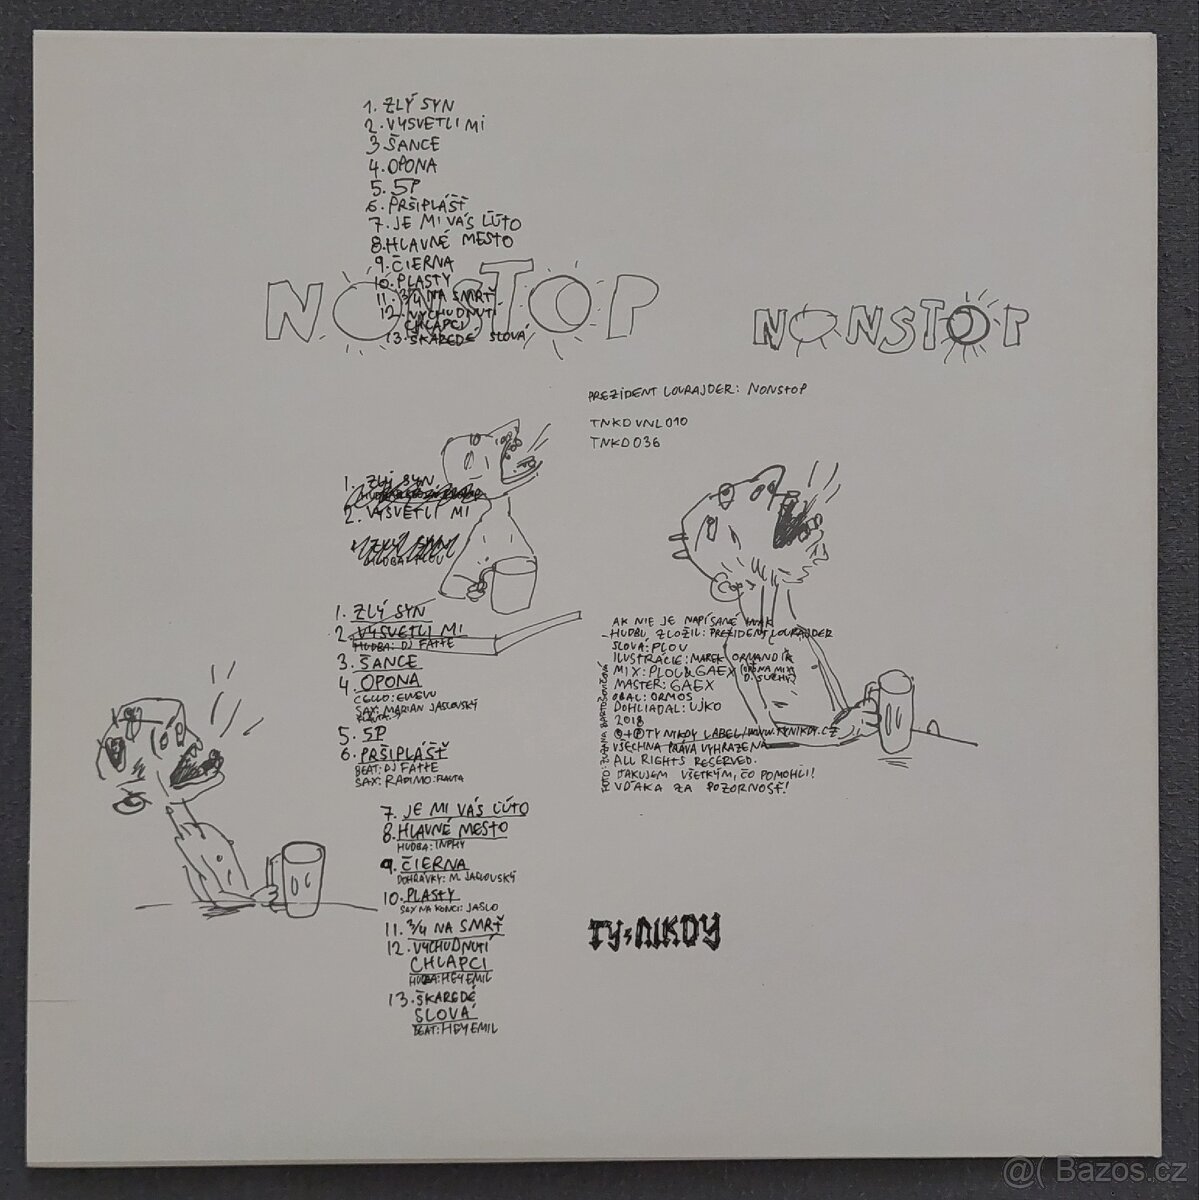 1. ZLÝ SYN
2. VYSVETLI MI
3 ŠANCE
4. OPONA
5. 5P
6. PRŠIPLÁŠŤ
7. JE MI VÁS ĽÚTO
8. HLAVNÉ MESTO
9. ČIERNA
10. PLASTY
11. 3/4 NA SMRŤ
12. VYCHUDNUTÍ
CHLAPCI
13. ŠKAREDÉ SLOVÁ
NONSTOP
NONSTOP
PREZIDENT LOURAJDER: NONSTOP
TNKDVNL010
TNKD036
1. ZLÝ SYN
2. VYSVETLI MI
1. ZLÝ SYN
2. VYSVETLI MI
HUDBA: DJ FATTE
3. ŠANCE
4. OPONA
SAX: MARIAN JASLOVSKÝ
5. 5P
6. PRŠIPLÁŠŤ
BEAT: DJ FATTE
SAX: RADIMO: FLAUTA
7. JE MI VÁS ĽÚTO
8. HLAVNÉ MESTO
HUDBA: INPHY
9. ČIERNA
DOHRÁVKY: M. JASLOVSKÝ
10. PLASTY
SAX NA KONCI: JASLO
11. 3/4 NA SMRŤ
12. VYCHUDNUTÍ
CHLAPCI
HUDBA: HEYEMIL
13. ŠKAREDÉ
SLOVÁ
BEAT: HEYEMIL
AK NIE JE NAPÍSANÉ INAK
HUDBU ZLOŽIL: PREZIDENT LOURAJDER
SLOVÁ: PLOU
ILUSTRÁCIE: MAREK ORMANDÍK
MIX: PLOU & GAEX (OPONA MIX D. SUCHÝ)
MASTER: GAEX
OBAL: ORMOS
DOHLIADAL: UJKO
2018
©+℗ TY NIKDY LABEL/WWW.TYNIKDY.CZ
VŠECHNA PRÁVA VYHRAZENA
ALL RIGHTS RESERVED.
ĎAKUJEM VŠETKÝM, ČO POMOHLI!
VĎAKA ZA POZORNOSŤ!
TY NIKDY
@( Bazos.cz